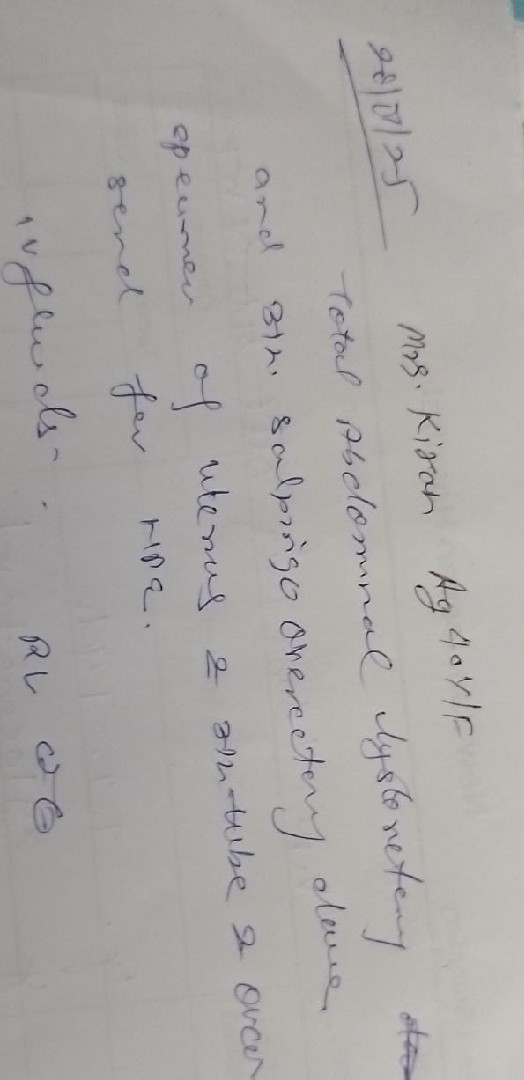 28/5/25
Mrs. Kiran Ag 40Y/F
Total Abdominal Hystoretery
and Bir. salpingo overectery done.
specumen of uterus & tube & over
send for HPE.
iv fluids - RL